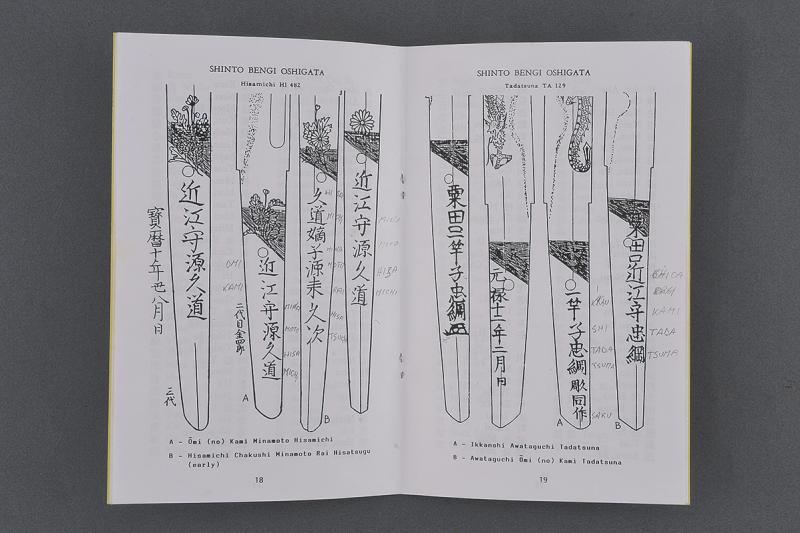 SHINTO BENGI OSHIGATA
Hisamichi HI 482
近江守源久道
三代
近江守源久道
二代目金四郎
OMI
KAMI
MINO
MOTO
HISA
MICHI
A
久道嫡子源来久次
B
近江守源久道
HISA
MICHI
A - Ōmi (no) Kami Minamoto Hisamichi
B - Hisamichi Chakushi Minamoto Rai Hisatsugu
(early)
18
SHINTO BENGI OSHIGATA
Tadatsuna TA 129
粟田口一竿子忠綱
元禄十二年二月日
一竿子忠綱
彫同作
KAN
SHI
TADA
TSUNA
SAKU
A
粟田口近江守忠綱
KAMI
TADA
TSUNA
B
A - Ikkanshi Awataguchi Tadatsuna
B - Awataguchi Ōmi (no) Kami Tadatsuna
19